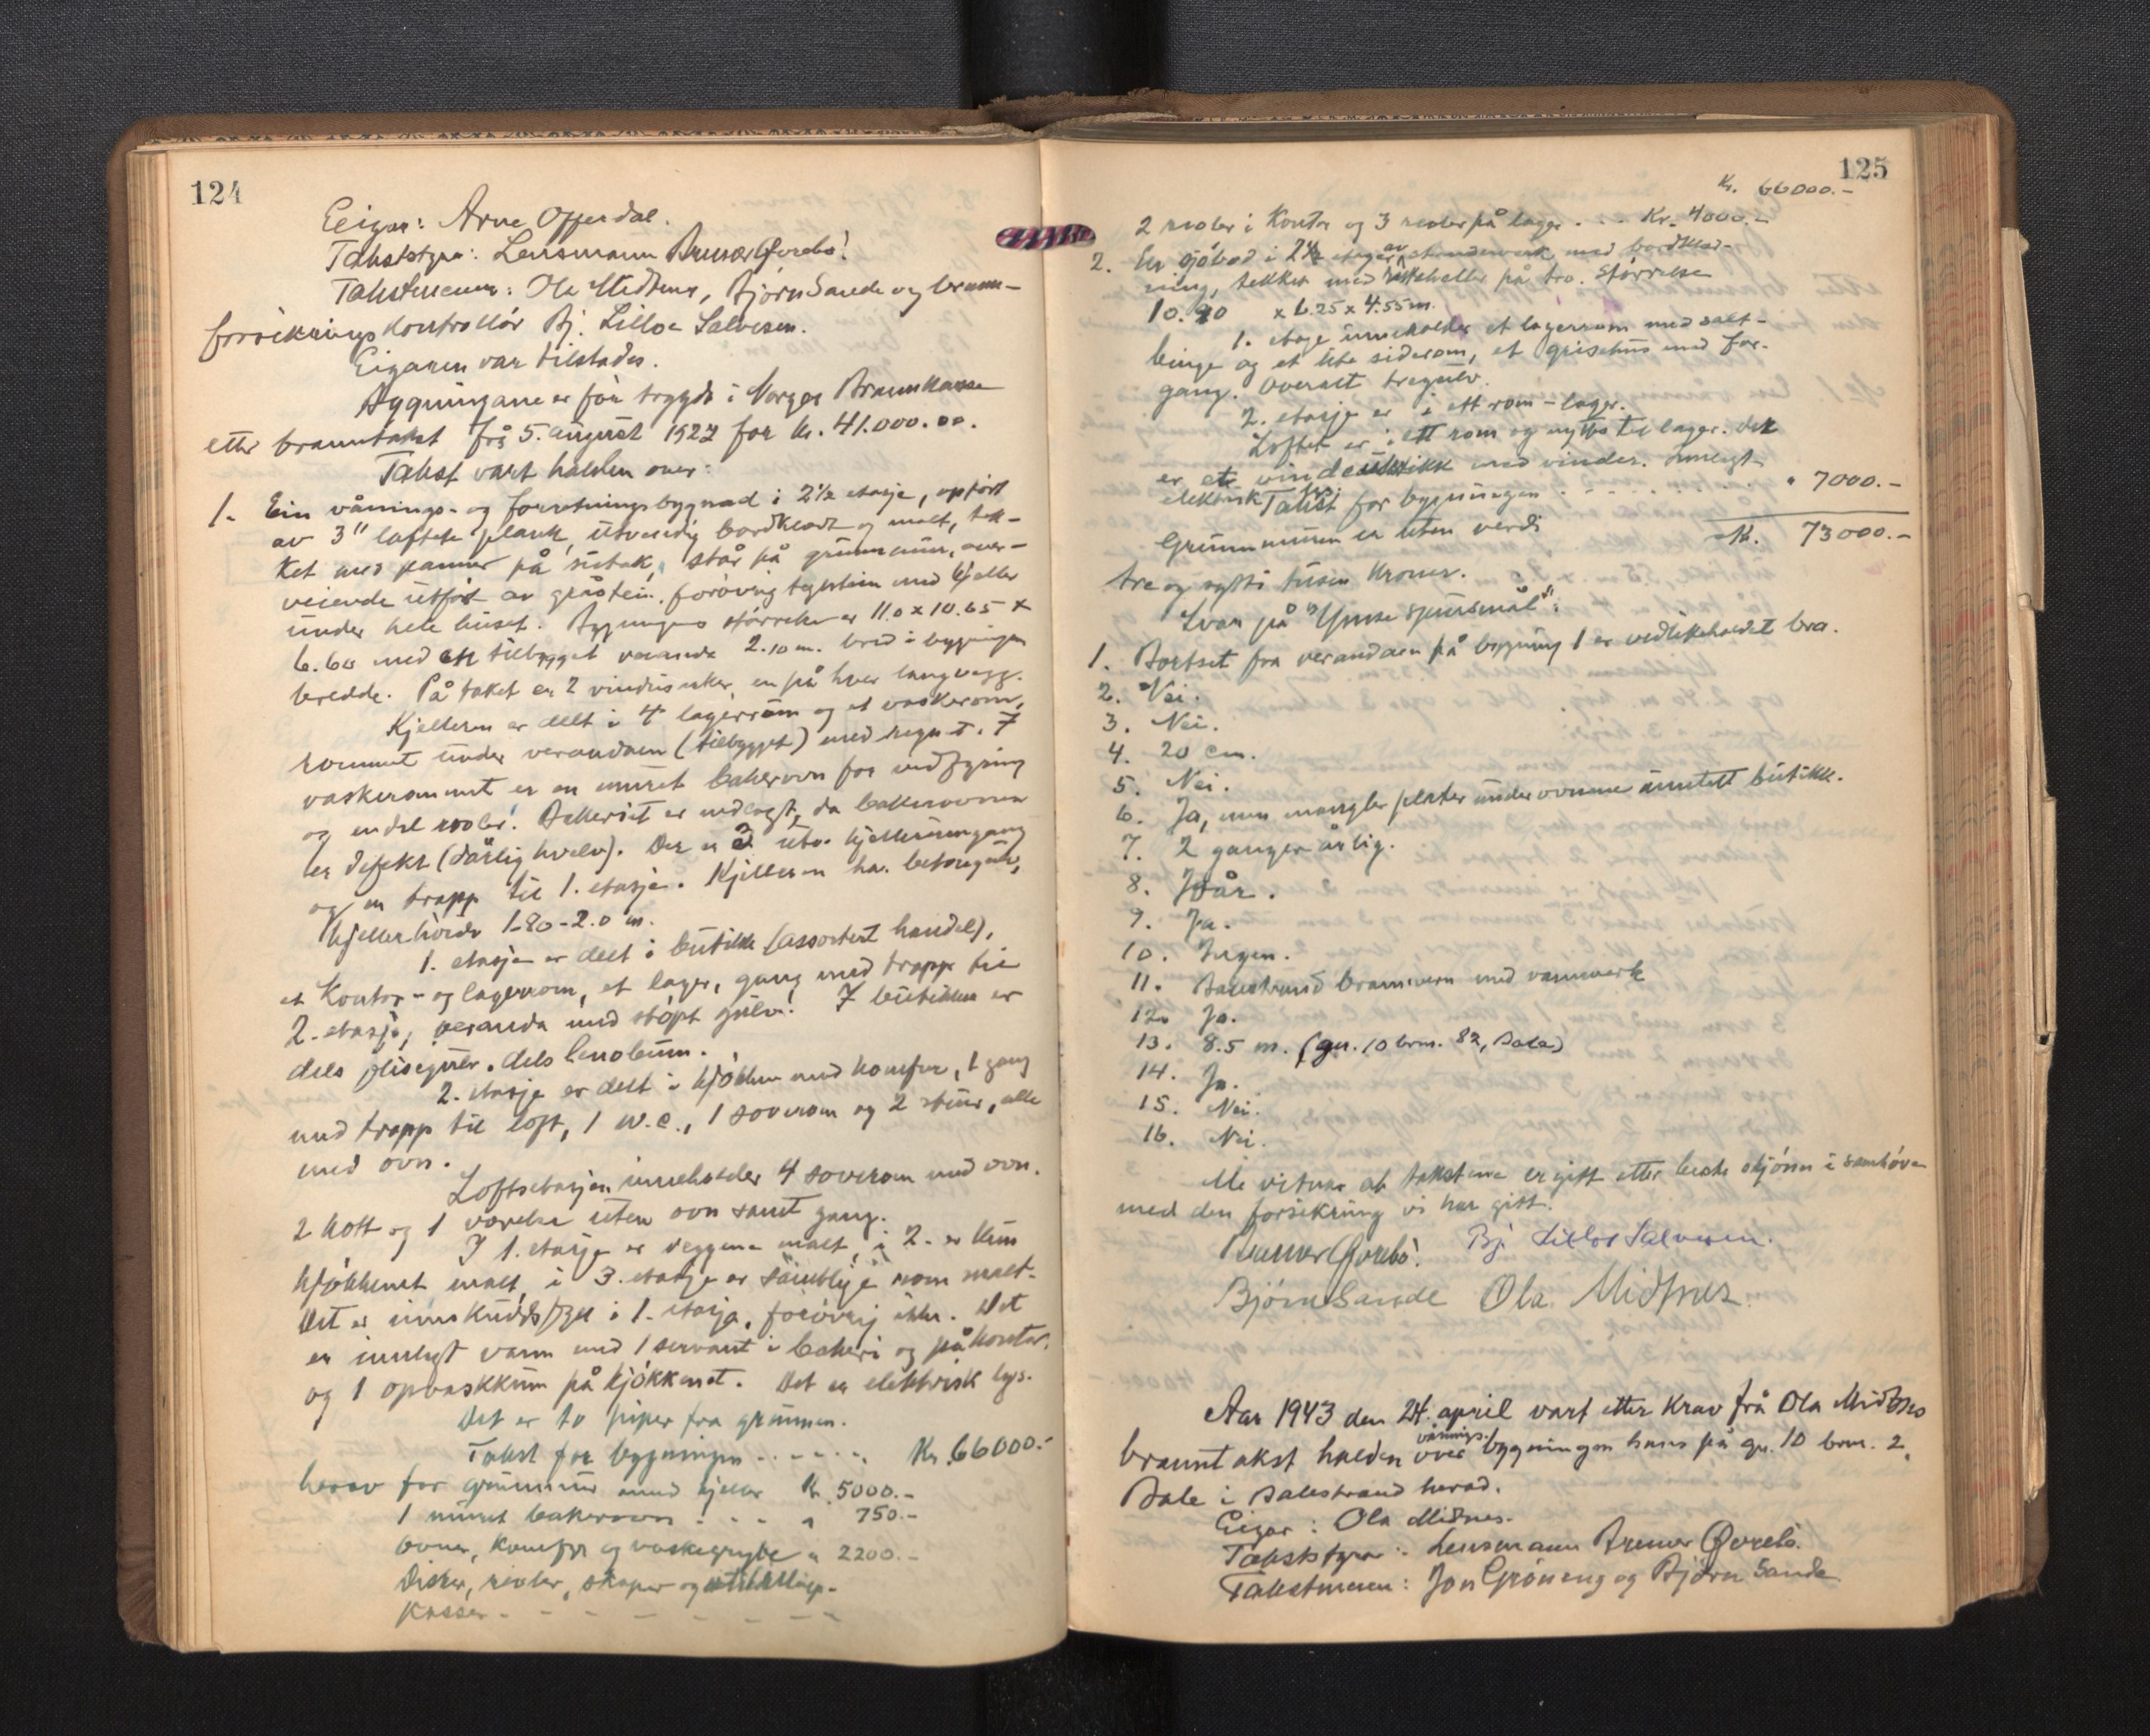 124
Eigar: Arne Offerdal.
Takststyra: Lensmann Brunor Øvrebö.
Takstmenn: Ola Midtnes, Bjørn Sande og brann-
forsikringskontrollør Bj. Lilloe Salvesen.
Eigaren var tilstades.
Bygningane er før trygda i Norges Brannkasse
etter branntakst frå 5. august 1927 for kr. 41.000.00.
Takst vart halden over:
1. Ein vånings- og forretningsbygnad i 2½ etasje, opført
av 3" laftet plank, utvendig bordkledt og malt, tek-
ket med panner på sutak, står på grunnmur, over-
veiende utført av gråstein, forøvrig teglstein med kjeller
under hele huset. Bygningens størrelse er 11.0 x 10.65 x
6.60 med en tilbygget veranda 2.10 m. bred i bygningens
bredde. På taket er 2 vindusarker, en på hver langvegg.
Kjelleren er delt i 4 lagerrom og et vaskerom,
rommet under verandaen (tilbygget) med
vaskerommet er en muret bakerovn for vedfyring
og endel reoler. Bakeriet er nedlagt, da bakerovnen
er defekt (dårlig hvelv). Der er 3 utv. kjellerinngang
og en trapp til 1. etasje. Kjelleren har betonggulv,
kjellerhøide 1.80-2.0 m.
1. etasje er delt i butikk (assortert handel),
et kontor- og lagerrom, et lager, gang med trapp til
2. etasje, veranda med støpt gulv. I butikken er
dels flisegulv, dels linoleum.
2. etasje er delt i kjøkken med komfyr, 1 gang
med trapp til loft, 1 w.c., 1 soverom og 2 stuer, alle
med ovn.
Loftsetasjen inneholder 4 soverom med ovn.
2 kott og 1 værelse uten ovn samt gang.
I 1. etasje er veggene malt, i 2. er kun
kjøkkenet malt, i 3. etasje er samtlige rom malt.
Det er innskuddsfyll i 1. etasje, forøvrig ikke. Det
er innlagt vann med 1 servant i bakeri og på kontor,
og 1 opvaskkum på kjøkkenet. Det er elektrisk lys.
Det er to piper fra grunnen.
Takst for bygningen - - - - - Kr. 66000.-
herav for grunnmur med kjeller Kr. 5000.-
1 muret bakerovn - - - " 750.-
Ovner, komfyr og vaskegryte " 2200.-
Disker, reoler, skaper og
kasser - - - - - - - -
125
Kr. 66000.-
2 reoler i kontor og 3 reoler på lager - - - Kr. 4000.-
2. En sjøbod i 2½ etager av stenderverk med bordkled-
ning, tekket med heller på tro. Størrelse
10.90 x 6.25 x 4.55 m.
1. etage inneholder et lagerrom med salt-
binge og et lite siderom, et grisehus med for-
gang. Overalt tregulv.
2. etasje er i ett rom - lager.
Loftet er i ett rom og nyttes til lager. Det
er et med vinder. Innlagt
elektrisk lys.
Takst for bygningen - - - - - - - " 7000.-
Grunnmuren er uten verdi
Kr. 73000.-
tre og sytti tusen kroner.
Svar på "Ymse spursmål":
1. Bortset fra verandaen på bygning 1 er vedlikeholdet bra.
2. Nei.
3. Nei.
4. 20 cm.
5. Nei.
6. Ja, men mangler plater under ovnene unntatt butikk.
7. 2 ganger årlig.
8. I år.
9. Ja.
10. Ingen.
11. Balestrand brannvern med vannverk
12. Ja.
13. 8.5 m. (gn. 10 brn. 82, Bale)
14. Ja.
15. Nei.
16. Nei.
Me vitnar at takstene er gitt etter beste skjønn i samhøve
med den forsikring vi har gitt.
Brunor Øvrebö. Bj. Lilloe Salvesen.
Bjørn Sande Ola Midtnes
Aar 1943 den 24. april vart etter krav frå Ola Midtnes
branntakst halden over vånings-bygningen hans på gn. 10 brn. 2,
Bale i Balestrand herad.
Eigar: Ola Midtnes.
Takststyrar: Lensmann Brunor Øvrebö.
Takstmenn: Jon Grøneng og Bjørn Sande